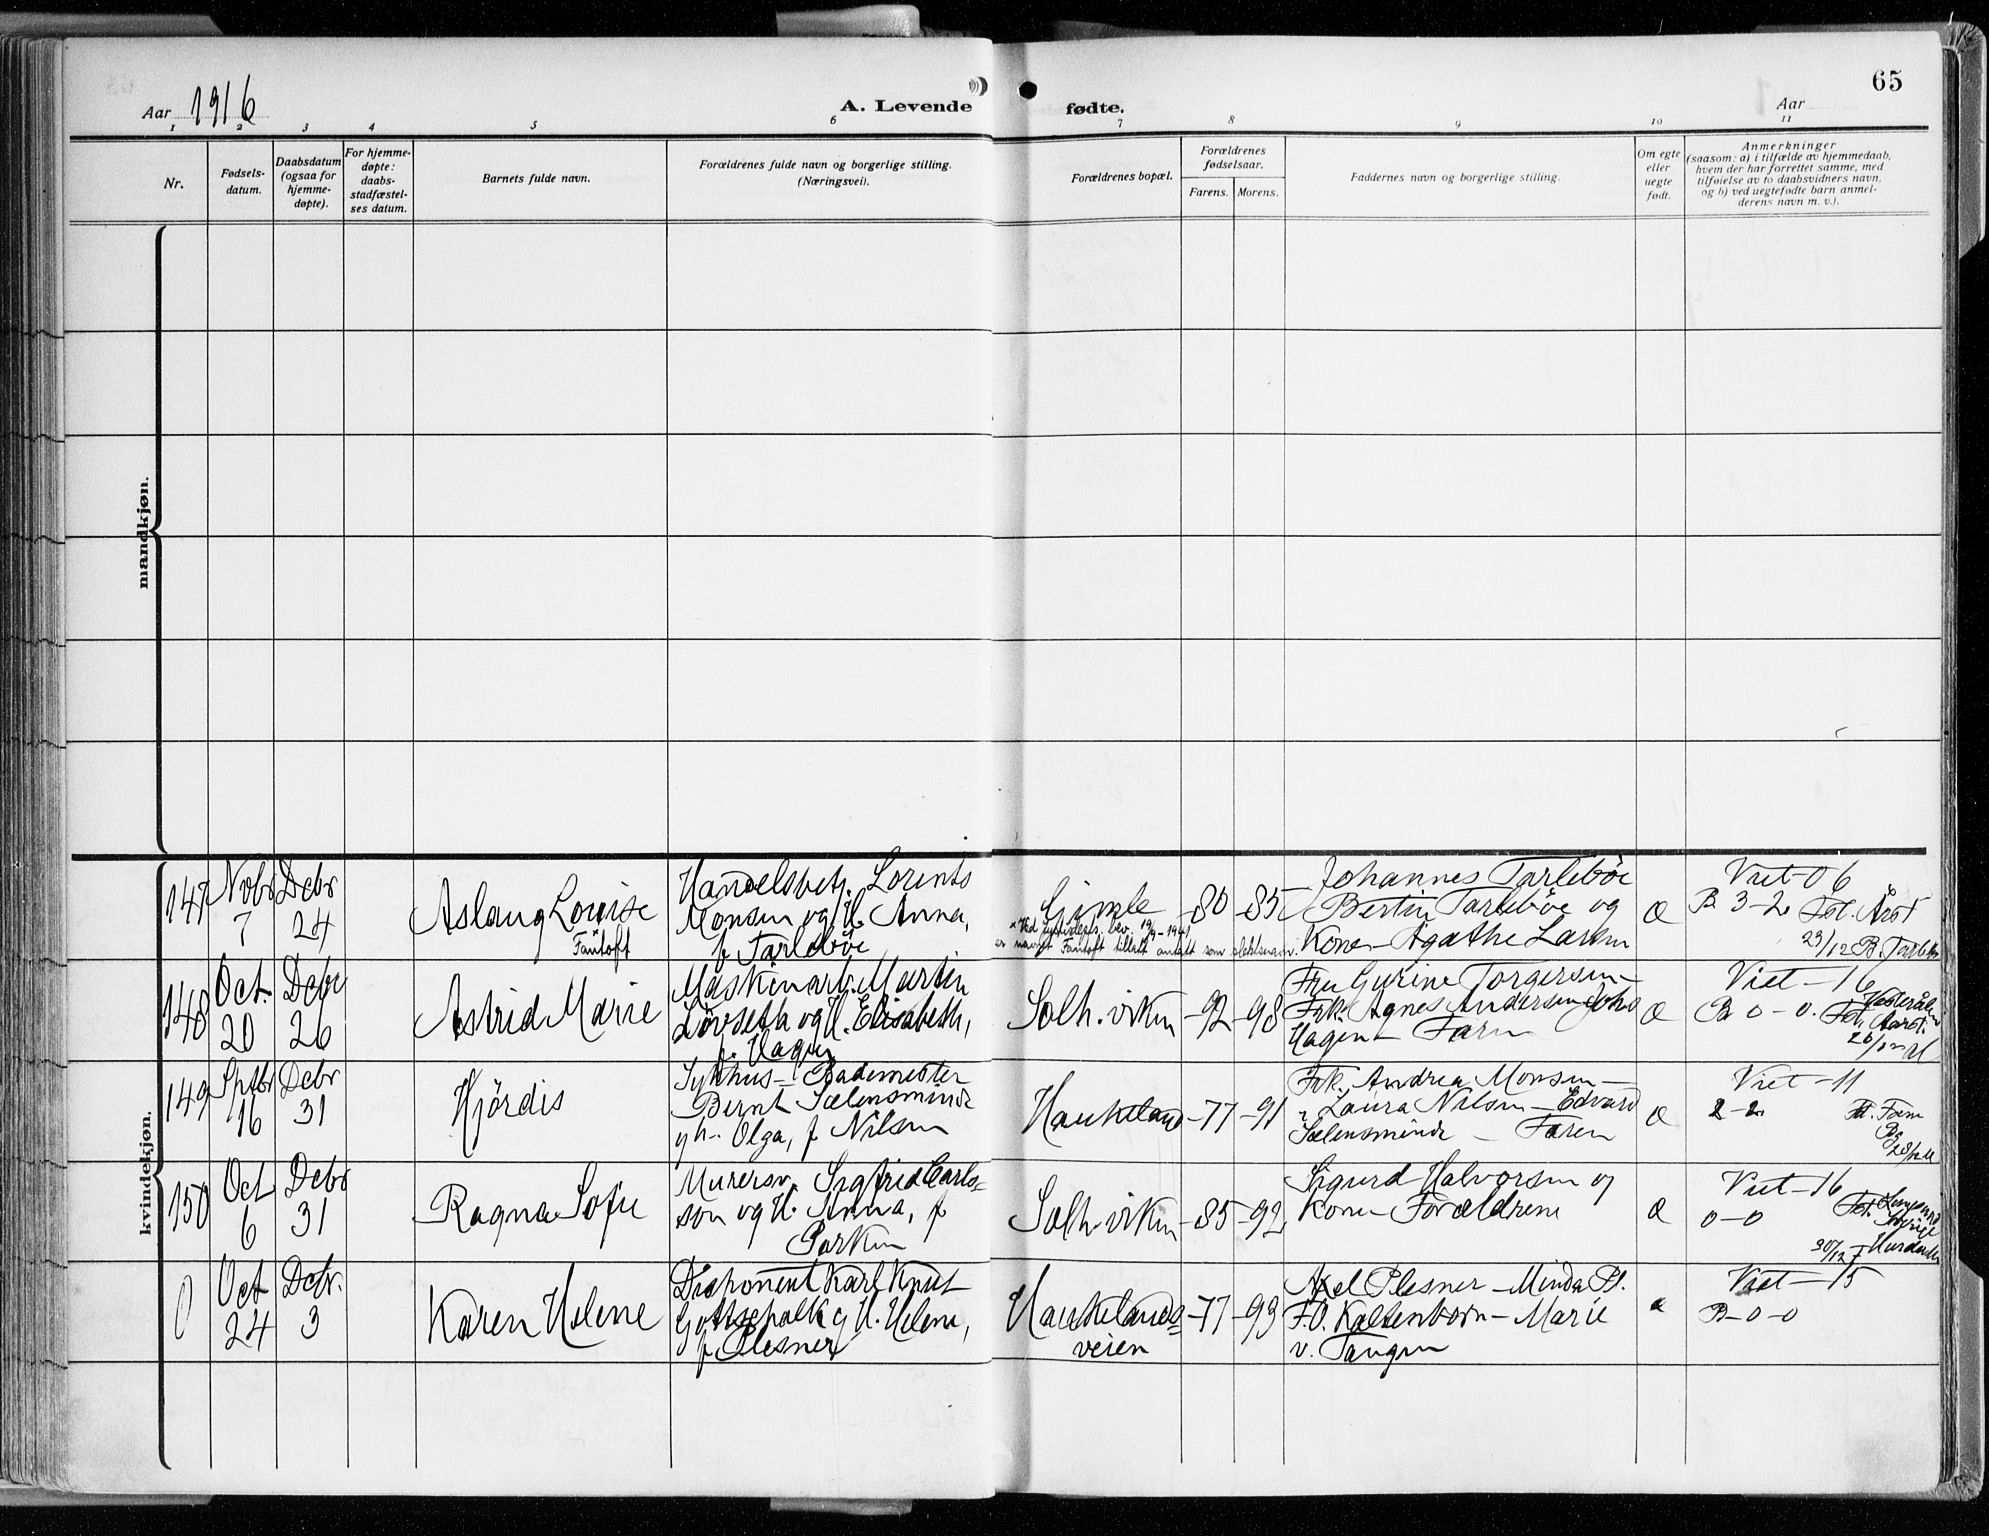 65
Aar 1916
A. Levende
fødte.
Aar
1 2 3 4 5 6 7 8 9 10 11
Nr.
Fødsels-
datum.
Daabsdatum
(ogsaa for
hjemme-
døpte).
For hjemme-
døpte:
daabs-
stadfæstel-
ses datum.
Barnets fulde navn.
Forældrenes fulde navn og borgerlige stilling.
(Næringsvei).
Forældrenes bopæl.
Forældrenes
fødselsaar.
Farens. Morens.
Faddernes navn og borgerlige stilling.
Om egte
eller
uegte
født.
Anmerkninger
(saasom: a) i tilfælde av hjemmedaab,
hvem der har forrettet samme, med
tilføielse av to daabsvidners navn,
og b) ved uegtefødte barn anmel-
derens navn m. v.).
mandkjøn.
kvindekjøn.
147
Novbr
7
Decbr
24
Aslaug Louise
x
Fantoft
Handelsbetj. Lorents
Monsen og H. Anna,
f Tarlebøe
Gimle
-80
-85
Johannes Tarlebøe
Bertin Tarlebøe og
Kone - Agathe Larsen
Æ
Viet - 06
B. 3-2
23/12 B.
148
Oct.
20
Decbr
26
Astrid Marie
Maskinarb. Martin
Løvseth og H. Elisabeth,
f. Hagen
Solh.viken
-92
-98
Fru Gurine Torgersen -
Frk. Agnes Andersen - Johs
Hagen - Faren
Æ
Viet - 16
B 0 - 0.
149
Septbr
16
Decbr
31
Hjørdis
Sykhus - Bademester
Bernt Sælensminde
og h. Olga, f Nilsen
Haukeland
-77
-91
Frk. Andrea Monsen -
" Laura Nilsen - Edvard
Sælensminde - Faren
Æ
Viet - 11
2 - 2
150
Oct
6
Decbr
31
Ragna Sofie
Murersv. Sigfrid Carls-
son og H. Anna, f
Parken
Solh.viken
-85
-92
Sigurd Halvorsen og
Kone - Forældrene
Æ
Viet - 16
0 - 0
30/12
0
Oct
24
Decbr.
3
Karen Helene
Disponent Karl Knut
Gottschalk og H. Helene,
f Plesner
Haukelands-
veien
-77
-93
Axel Plesner - Minda Pl.
F.O. Kaltenborn - Marie
v. Tangen
Æ
Viet - 15
B - 0 - 0